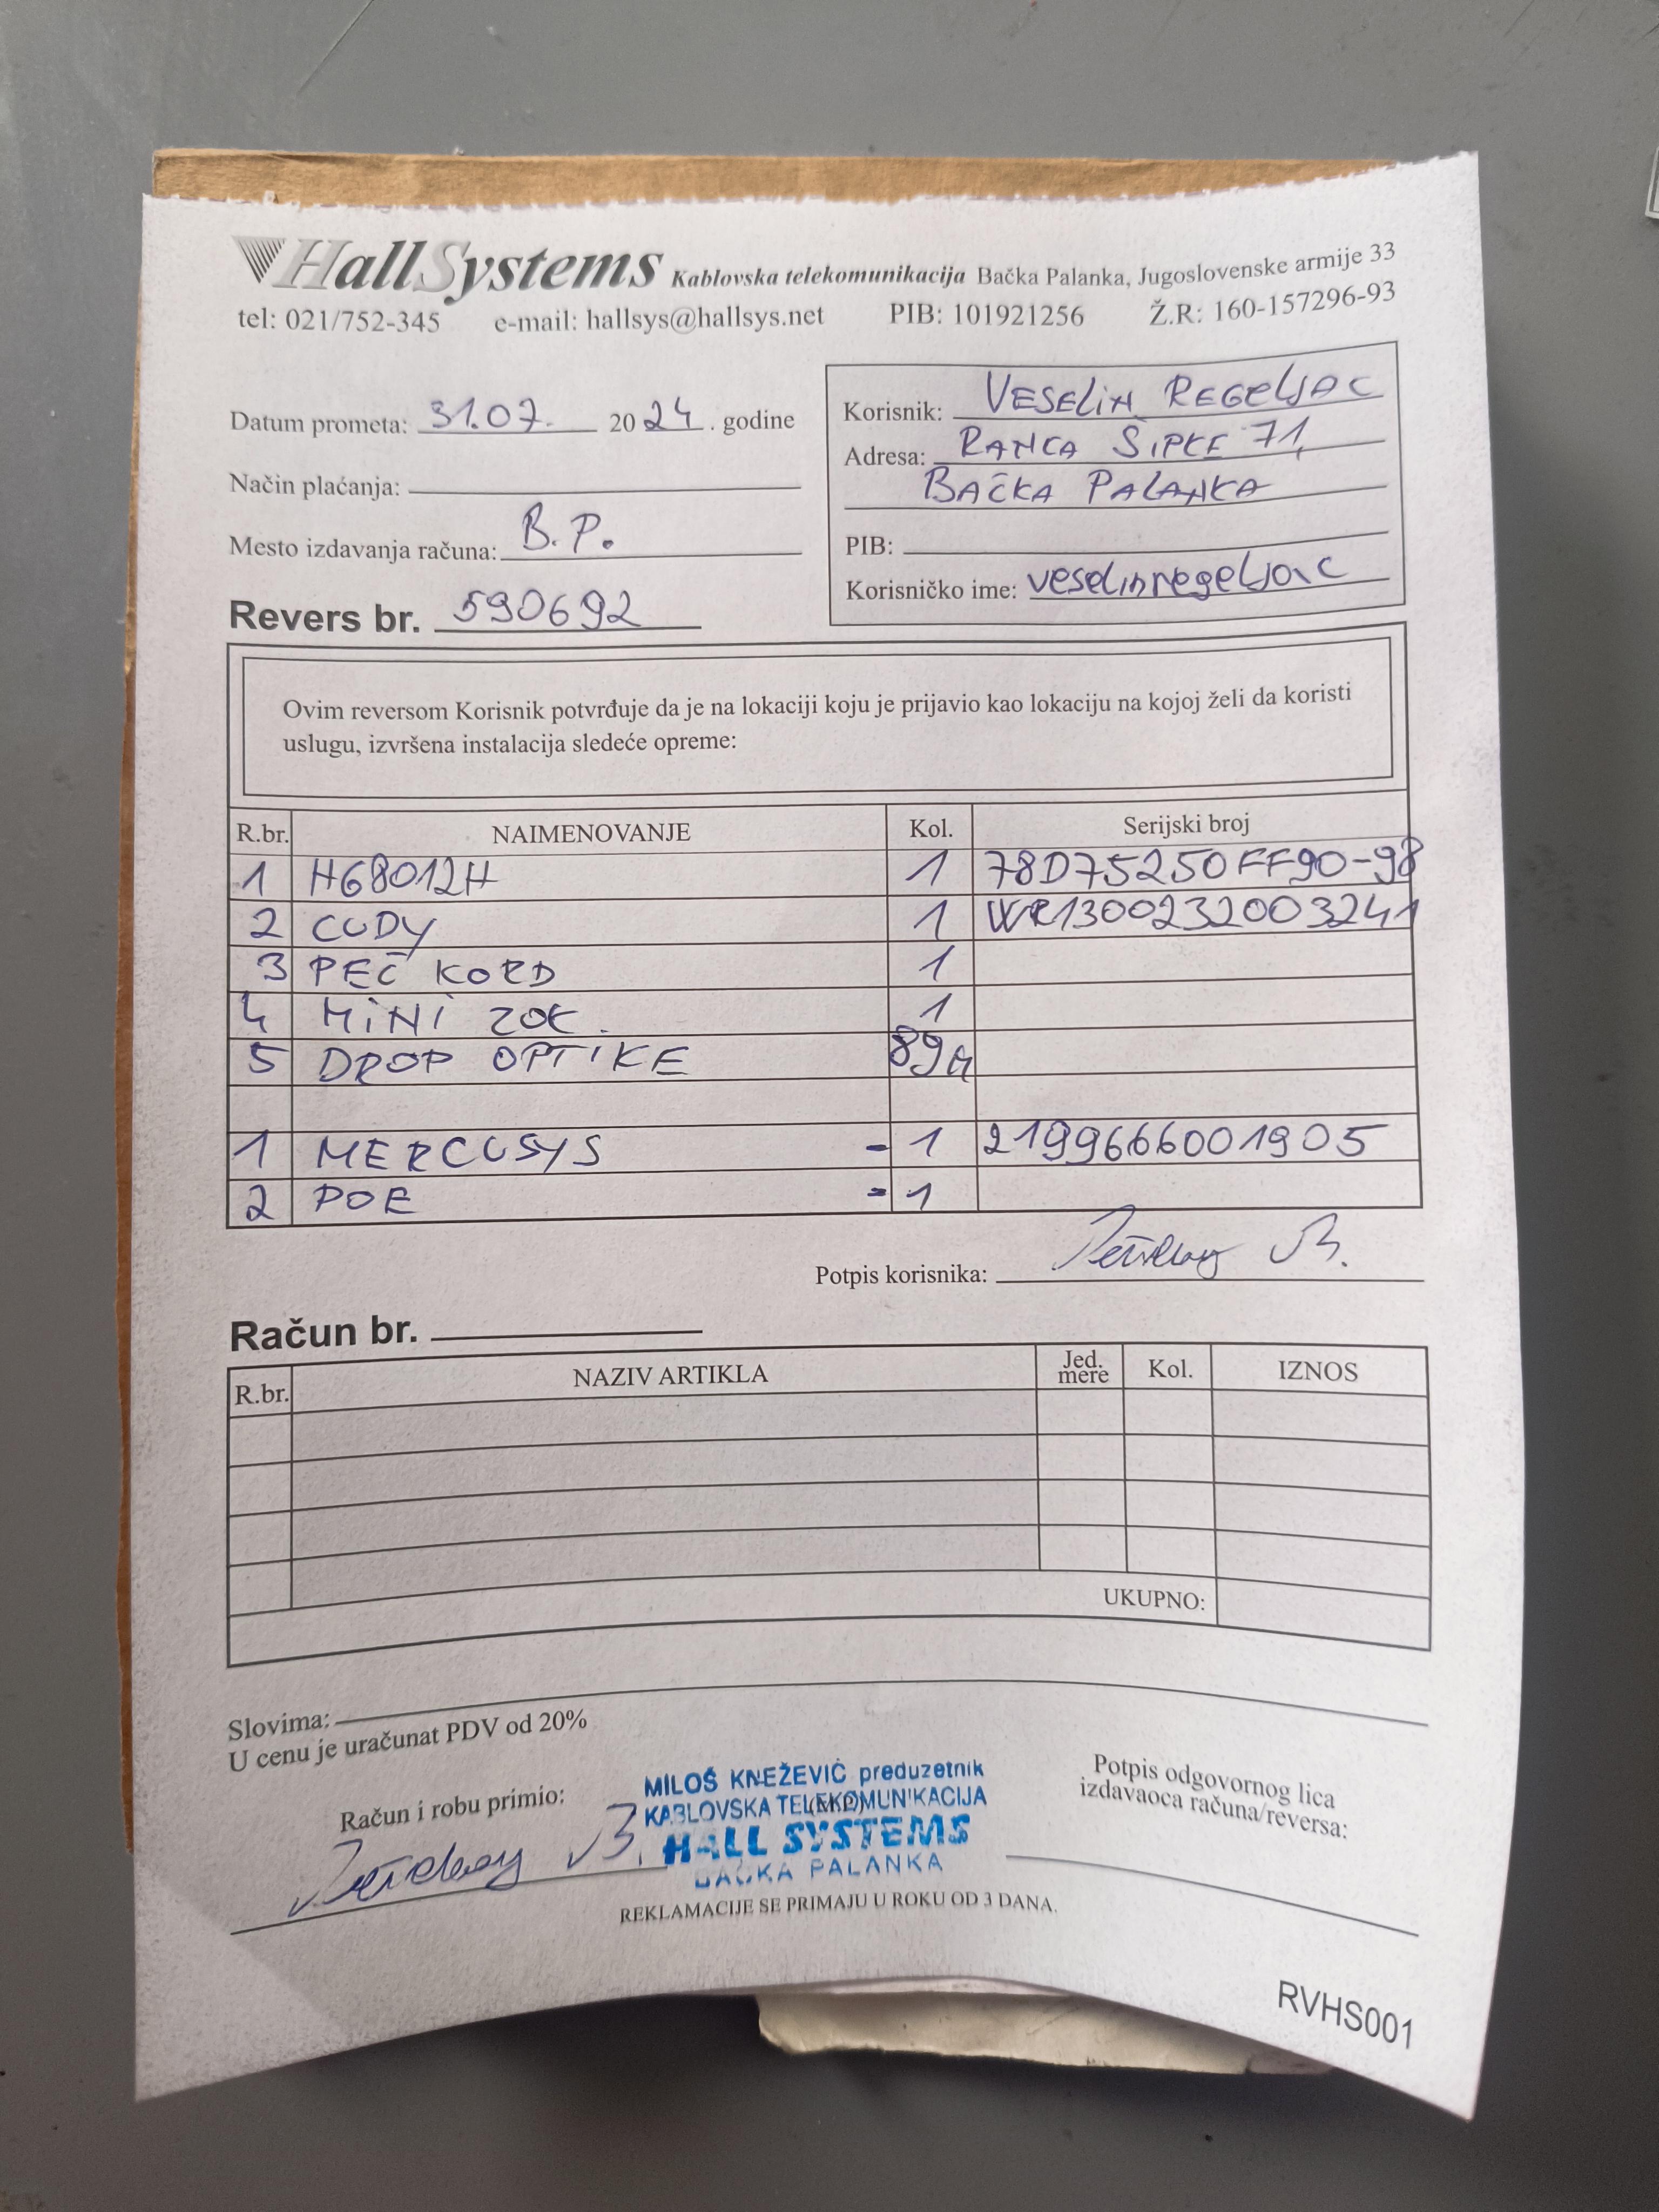 HallSystems Kablovska telekomunikacija Bačka Palanka, Jugoslovenske armije 33
tel: 021/752-345 e-mail: hallsys@hallsys.net PIB: 101921256 Ž.R: 160-157296-93
Datum prometa: 31.07. 2024. godine
Način plaćanja:
Mesto izdavanja računa: B.P.
Revers br. 590692
Korisnik: VESELIN REGELJAC
Adresa: RANKA ŠIPKE 71,
BAČKA PALANKA
PIB:
Korisničko ime: veselinregeljac
Ovim reversom Korisnik potvrđuje da je na lokaciji koju je prijavio kao lokaciju na kojoj želi da koristi
uslugu, izvršena instalacija sledeće opreme:
R.br. NAIMENOVANJE Kol. Serijski broj
1 HG8012H 1 78D75250FF90-98
2 CUDY 1 WR1300232003241
3 PEČ KORD 1
4 MINI ZOK. 1
5 DROP OPTIKE 89m
1 MERCUSYS - 1 2199666001905
2 POE - 1
Potpis korisnika:
Račun br.
R.br. NAZIV ARTIKLA Jed. mere Kol. IZNOS
UKUPNO:
Slovima:
U cenu je uračunat PDV od 20%
Račun i robu primio:
MILOŠ KNEŽEVIĆ preduzetnik
KABLOVSKA TELEKOMUNIKACIJA
HALL SYSTEMS
BAČKA PALANKA
(M.P.)
Potpis odgovornog lica
izdavaoca računa/reversa:
REKLAMACIJE SE PRIMAJU U ROKU OD 3 DANA.
RVHS001